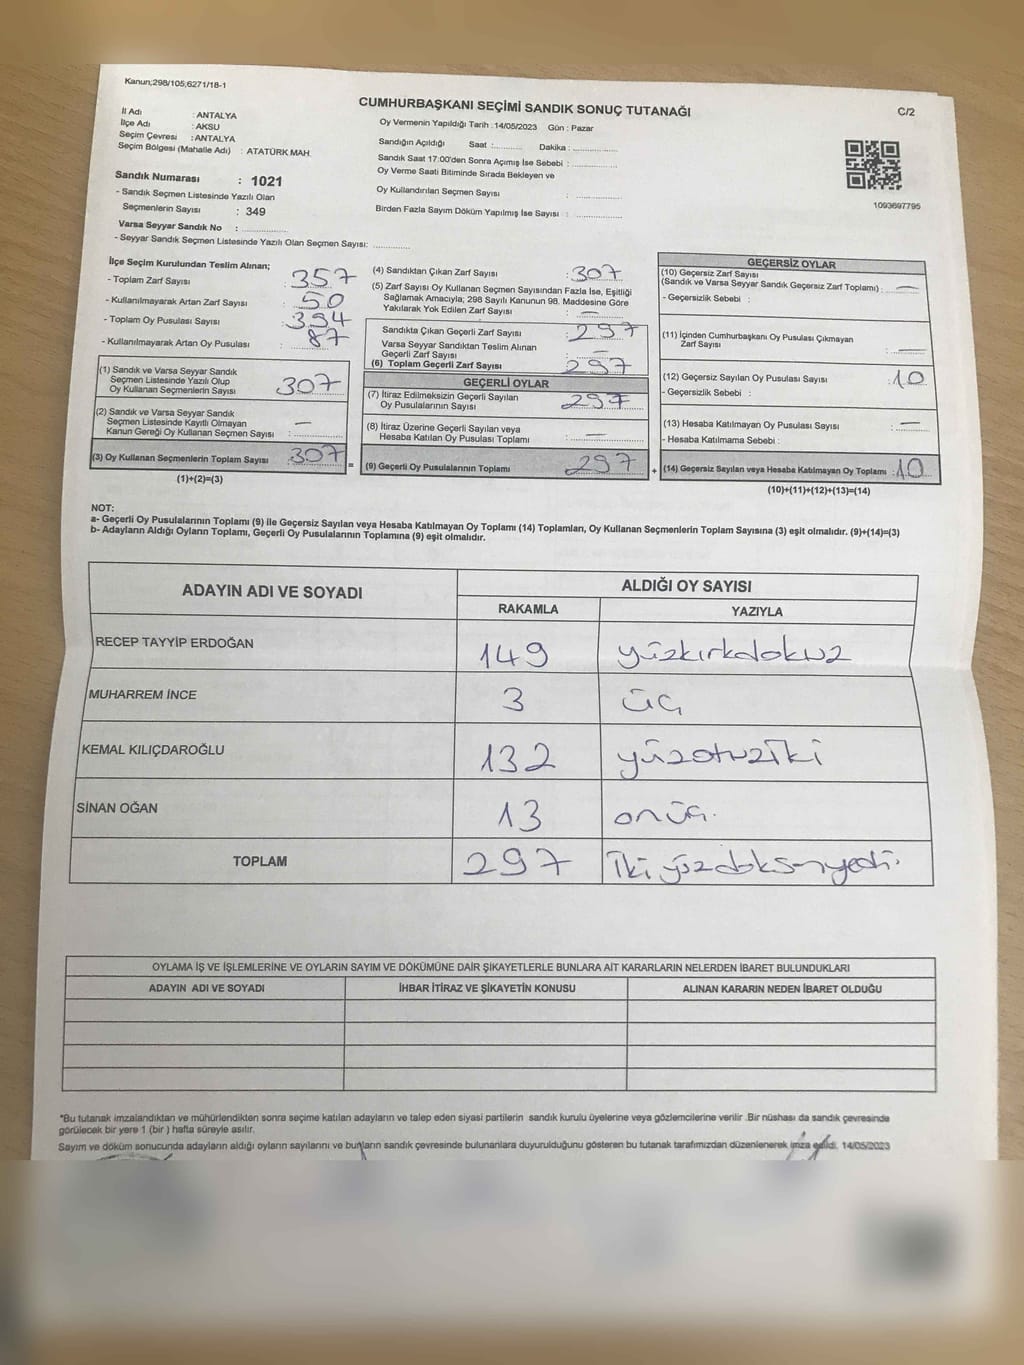 Kanun;298/105;6271/18-1
CUMHURBAŞKANI SEÇİMİ SANDIK SONUÇ TUTANAĞI
C/2
İl Adı : ANTALYA
İlçe Adı : AKSU
Seçim Çevresi : ANTALYA
Seçim Bölgesi (Mahalle Adı) : ATATÜRK MAH.
Sandık Numarası : 1021
- Sandık Seçmen Listesinde Yazılı Olan
Seçmenlerin Sayısı : 349
Varsa Seyyar Sandık No : ..............
- Seyyar Sandık Seçmen Listesinde Yazılı Olan Seçmen Sayısı: ............
Oy Vermenin Yapıldığı Tarih : 14/05/2023 Gün : Pazar
Sandığın Açıldığı Saat :.......... Dakika : ..............
Sandık Saat 17:00'den Sonra Açımış İse Sebebi : ..............
Oy Verme Saati Bitiminde Sırada Bekleyen ve
Oy Kullandırılan Seçmen Sayısı : ..............
Birden Fazla Sayım Döküm Yapılmış İse Sayısı : ..............
1093697795
İlçe Seçim Kurulundan Teslim Alınan;
- Toplam Zarf Sayısı : 357
- Kullanılmayarak Artan Zarf Sayısı : 50
- Toplam Oy Pusulası Sayısı : 394
- Kullanılmayarak Artan Oy Pusulası : 87
(1) Sandık ve Varsa Seyyar Sandık
Seçmen Listesinde Yazılı Olup
Oy Kullanan Seçmenlerin Sayısı : 307
(2) Sandık ve Varsa Seyyar Sandık
Seçmen Listesinde Kayıtlı Olmayan
Kanun Gereği Oy Kullanan Seçmen Sayısı : —
(3) Oy Kullanan Seçmenlerin Toplam Sayısı : 307
(1)+(2)=(3)
=
(4) Sandıktan Çıkan Zarf Sayısı : 307
(5) Zarf Sayısı Oy Kullanan Seçmen Sayısından Fazla İse, Eşitliği
Sağlamak Amacıyla; 298 Sayılı Kanunun 98. Maddesine Göre
Yakılarak Yok Edilen Zarf Sayısı : —
Sandıkta Çıkan Geçerli Zarf Sayısı : 297
Varsa Seyyar Sandıktan Teslim Alınan
Geçerli Zarf Sayısı : —
(6) Toplam Geçerli Zarf Sayısı : 297
GEÇERLİ OYLAR
(7) İtiraz Edilmeksizin Geçerli Sayılan
Oy Pusulalarının Sayısı : 297
(8) İtiraz Üzerine Geçerli Sayılan veya
Hesaba Katılan Oy Pusulası Toplamı : —
(9) Geçerli Oy Pusulalarının Toplamı : 297
+
GEÇERSİZ OYLAR
(10) Geçersiz Zarf Sayısı
(Sandık ve Varsa Seyyar Sandık Geçersiz Zarf Toplamı) : —
- Geçersizlik Sebebi :
(11) İçinden Cumhurbaşkanı Oy Pusulası Çıkmayan
Zarf Sayısı : —
(12) Geçersiz Sayılan Oy Pusulası Sayısı : 10
- Geçersizlik Sebebi :
(13) Hesaba Katılmayan Oy Pusulası Sayısı : —
- Hesaba Katılmama Sebebi :
(14) Geçersiz Sayılan veya Hesaba Katılmayan Oy Toplamı : 10
(10)+(11)+(12)+(13)=(14)
NOT:
a- Geçerli Oy Pusulalarının Toplamı (9) ile Geçersiz Sayılan veya Hesaba Katılmayan Oy Toplamı (14) Toplamları, Oy Kullanan Seçmenlerin Toplam Sayısına (3) eşit olmalıdır. (9)+(14)=(3)
b- Adayların Aldığı Oyların Toplamı, Geçerli Oy Pusulalarının Toplamına (9) eşit olmalıdır.
ADAYIN ADI VE SOYADI ALDIĞI OY SAYISI
RAKAMLA YAZIYLA
RECEP TAYYİP ERDOĞAN 149 yüzkırkdokuz
MUHARREM İNCE 3 üç
KEMAL KILIÇDAROĞLU 132 yüzotuziki
SİNAN OĞAN 13 onüç.
TOPLAM 297 İki yüz doksanyedi.
OYLAMA İŞ VE İŞLEMLERİNE VE OYLARIN SAYIM VE DÖKÜMÜNE DAİR ŞİKAYETLERLE BUNLARA AİT KARARLARIN NELERDEN İBARET BULUNDUKLARI
ADAYIN ADI VE SOYADI İHBAR İTİRAZ VE ŞİKAYETİN KONUSU ALINAN KARARIN NEDEN İBARET OLDUĞU
*Bu tutanak imzalandıktan ve mühürlendikten sonra seçime katılan adayların ve talep eden siyasi partilerin sandık kurulu üyelerine veya gözlemcilerine verilir .Bir nüshası da sandık çevresinde
görülecek bir yere 1 (bir ) hafta süreyle asılır.
Sayım ve döküm sonucunda adayların aldığı oyların sayılarını ve bunların sandık çevresinde bulunanlara duyurulduğunu gösteren bu tutanak tarafımızdan düzenlenerek imza edildi. 14/05/2023